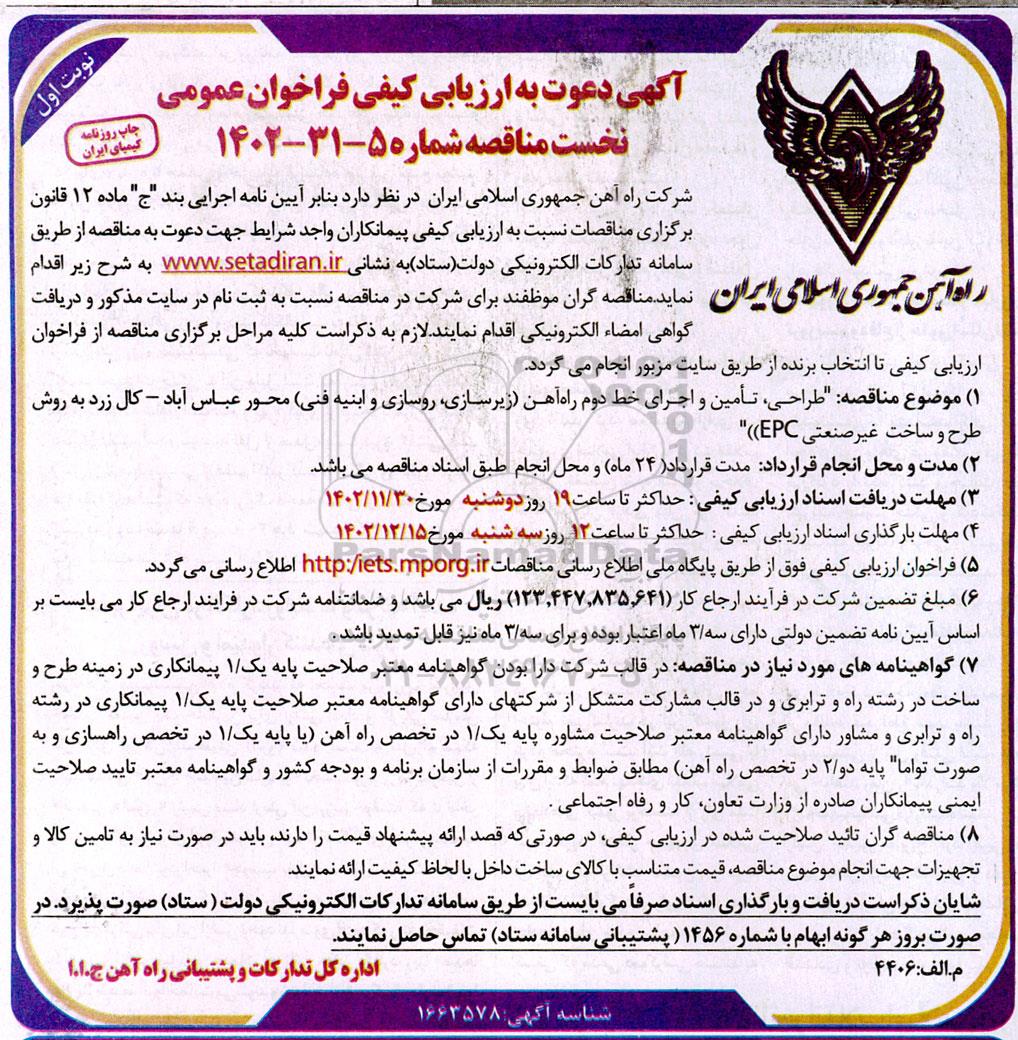 نوبت اول
آگهی دعوت به ارزیابی کیفی فراخوان عمومی
نخست مناقصه شماره ۵-۳۱-۱۴۰۲
چاپ روزنامه
کیمیای ایران
راه‌آهن جمهوری اسلامی ایران
شرکت راه آهن جمهوری اسلامی ایران در نظر دارد بنابر آیین نامه اجرایی بند "ج" ماده ۱۲ قانون
برگزاری مناقصات نسبت به ارزیابی کیفی پیمانکاران واجد شرایط جهت دعوت به مناقصه از طریق
سامانه تدارکات الکترونیکی دولت(ستاد)به نشانی www.setadiran.ir به شرح زیر اقدام
نماید.مناقصه گران موظفند برای شرکت در مناقصه نسبت به ثبت نام در سایت مذکور و دریافت
گواهی امضاء الکترونیکی اقدام نمایند.لازم به ذکراست کلیه مراحل برگزاری مناقصه از فراخوان
ارزیابی کیفی تا انتخاب برنده از طریق سایت مزبور انجام می گردد.
۱) موضوع مناقصه: "طراحی، تـأمین و اجـرای خط دوم راه‌آهـن (زیرسـازی، روسازی و ابنیه فنی) محـور عبـاس آباد – کال زرد به روش
طرح و ساخت غیرصنعتی EPC))"
۲) مدت و محل انجام قرارداد: مدت قرارداد( ۲۴ ماه) و محل انجام طبق اسناد مناقصه می باشد.
۳) مهلت دریافت اسناد ارزیابی کیفی : حداکثر تا ساعت۱۹ روز دوشنبه مورخ۱۴۰۲/۱۱/۳۰
۴) مهلت بارگذاری اسناد ارزیابی کیفی : حداکثر تا ساعت۱۲ روز سه شنبه مورخ۱۴۰۲/۱۲/۱۵
۵) فراخوان ارزیابی کیفی فوق از طریق پایگاه ملی اطلاع رسانی مناقصات http:/iets.mporg.ir اطلاع رسانی می‌گردد.
۶) مبلغ تضمین شرکت در فرآیند ارجاع کار (۱۲۳,۴۴۷,۸۳۵,۶۴۱) ریال می باشد و ضمانتنامه شرکت در فرایند ارجاع کار می بایست بر
اساس آیین نامه تضمین دولتی دارای سه/۳ ماه اعتبار بوده و برای سه/۳ ماه نیز قابل تمدید باشد .
۷) گواهینامه های مورد نیاز در مناقصه: در قالب شرکت دارا بودن گواهینامه معتبر صلاحیت پایه یک/۱ پیمانکاری در زمینه طرح و
ساخت در رشته راه و ترابری و در قالب مشارکت متشکل از شرکتهای دارای گواهینامه معتبر صلاحیت پایه یک/۱ پیمانکاری در رشته
راه و ترابری و مشاور دارای گواهینامه معتبر صلاحیت مشاوره پایه یک/۱ در تخصص راه آهن (یا پایه یک/۱ در تخصص راهسازی و به
صورت تواما" پایه دو/۲ در تخصص راه آهن) مطابق ضوابط و مقررات از سازمان برنامه و بودجه کشور و گواهینامه معتبر تایید صلاحیت
ایمنی پیمانکاران صادره از وزارت تعاون، کار و رفاه اجتماعی .
۸) مناقصه گران تائید صلاحیت شده در ارزیابی کیفی، در صورتی‌که قصد ارائه پیشنهاد قیمت را دارند، باید در صورت نیاز به تامین کالا و
تجهیزات جهت انجام موضوع مناقصه، قیمت متناسب با کالای ساخت داخل با لحاظ کیفیت ارائه نمایند.
شایان ذکراست دریافت و بارگذاری اسناد صرفاً می بایست از طریق سامانه تدارکات الکترونیکی دولت ( ستاد) صورت پذیرد. در
صورت بروز هر گونه ابهام با شماره ۱۴۵۶ ( پشتیبانی سامانه ستاد) تماس حاصل نمایند.
م.الف:۴۴۰۶
اداره کل تدارکات و پشتیبانی راه آهن ج.ا.ا
شناسه آگهی:۱۶۶۳۵۷۸
ParsNamadData